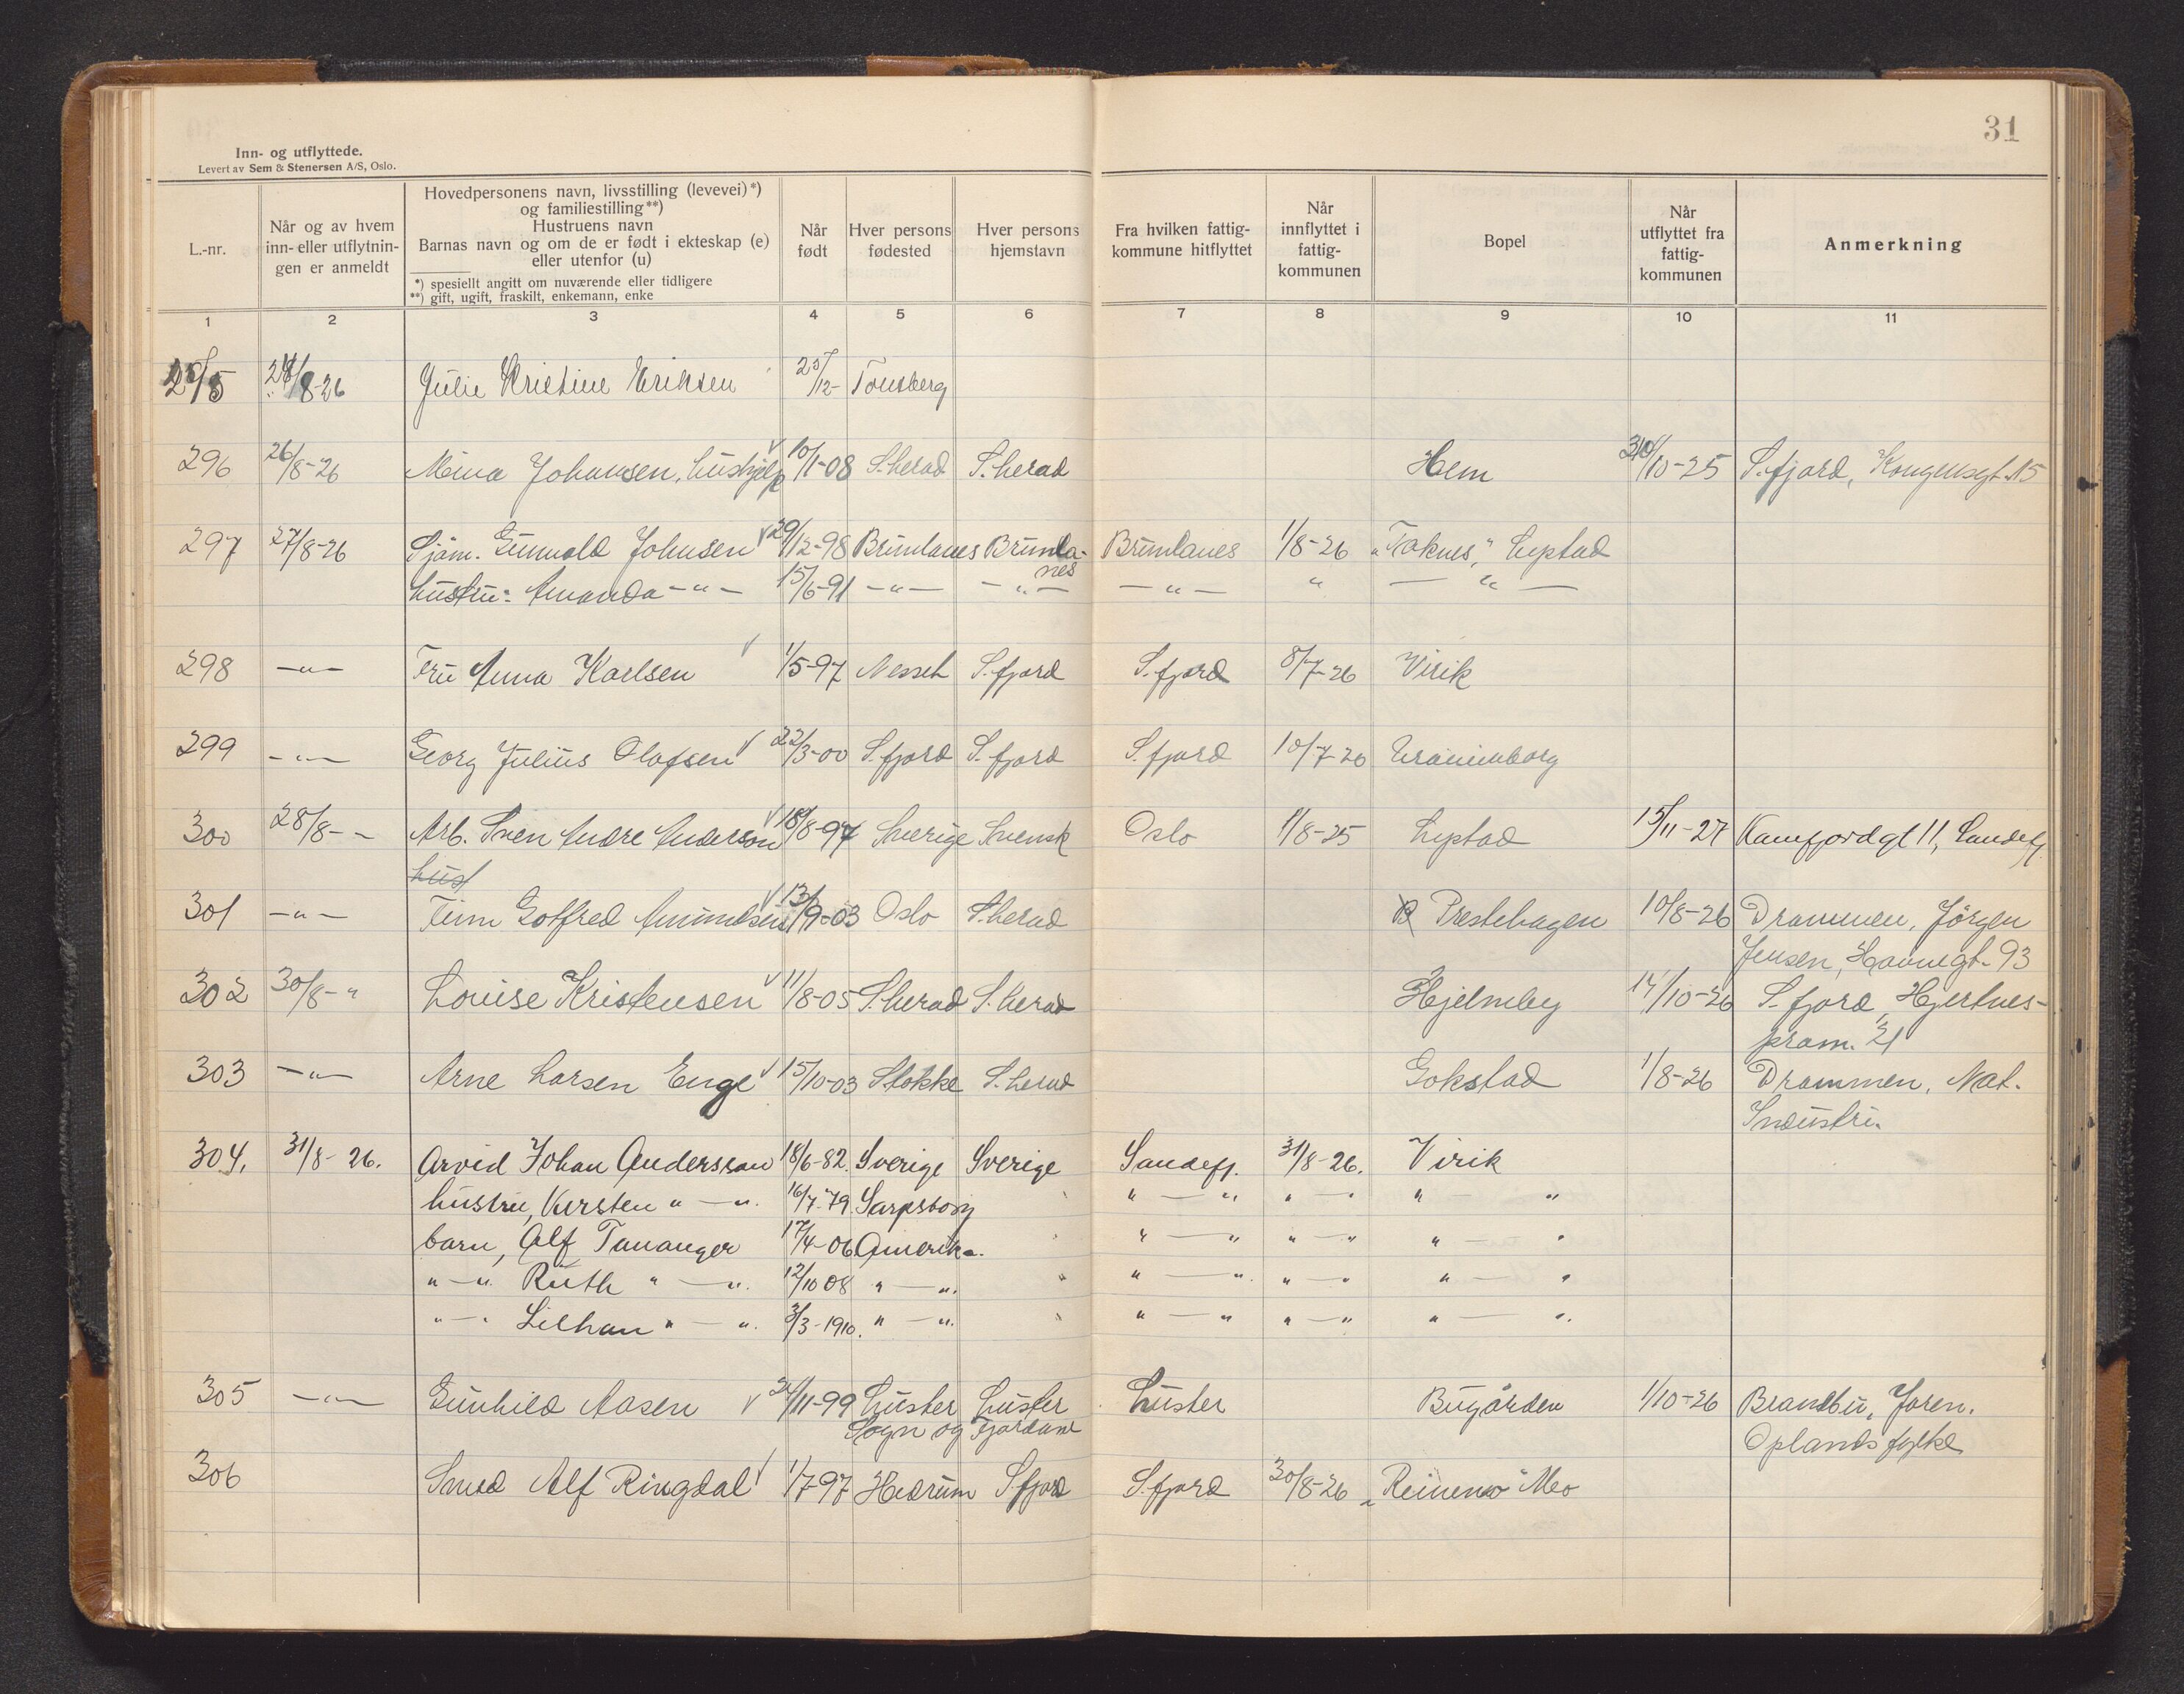 31
Inn- og utflyttede.
Levert av Sem & Stenersen A/S, Oslo.
L.-nr.
Når og av hvem
inn- eller utflytnin-
gen er anmeldt
Hovedpersonens navn, livsstilling (levevei)*)
og familiestilling**)
Hustruens navn
Barnas navn og om de er født i ekteskap (e)
eller utenfor (u)
*) spesiellt angitt om nuværende eller tidligere
**) gift, ugift, fraskilt, enkemann, enke
Når
født
Hver persons
fødested
Hver persons
hjemstavn
Fra hvilken fattig-
kommune hitflyttet
Når
innflyttet i
fattig-
kommunen
Bopel
Når
utflyttet fra
fattig-
kommunen
Anmerkning
1 2 3 4 5 6 7 8 9 10 11
Julie Kristine Eriksen 25/12- Tønsberg
296 26/8-26 Mina Johansen, hushjelp 10/1-08 S.herad S.herad Hem /10-25 S.fjord, Kongensgt. 15
297 27/8-26 Sjøm. Gunvald Johnsen 29/12-98 Brunlanes Brunla- Brunlanes 1/8-26 "Toknes," Lystad
nes
hustru: Amanda -"- 15/6-91 -"- -"- -"- " -"-
298 -"- Fru Anna Karlsen 1/5-97 Nesseh S.fjord S.fjord 8/7-26 Virik
299 -"- Georg Julius Olafsen 22/3-00 S.fjord S.fjord S.fjord 10/7-26 Uranienborg
300 28/8-- Arb. Sven Andre Anderson 18/8-97 Sverige Svensk Oslo 1/8-25 Lystad 15/11-27 Kamfjordgt 11, Sandefj.
hust
301 -"- Finn Gotfred Amundsen 13/9-03 Oslo S.herad Prestehagen 10/8-26 Drammen, Jörgen
Jensen, Havnegt. 93
302 30/8-" Louise Kristensen 11/8-05 S.herad S.herad Hjelmby 14/10-26 S.fjord, Hjertnes-
prom. 21
303 -"- Arne Larsen Enge 15/10-03 Stokke S.herad Gokstad 1/8-26 Drammen, Nat.
Industri.
304. 31/8-26. Arvid Johan Andersson 18/6-82. Sverige Sverige Sandefj. 31/8-26. Virik
hustru, Kersten "-". 16/7-79 Sarpsborg "-" "-" "-"
barn, Alf Tananger 17/4-06 Amerika. "-" "-" "-"
"-" Ruth "-". 12/10 08 "-". " "-". "-" "-"
"-" Lilhan "-". 3/3-1910. "-". "-" "-" "-".
305 -"- Gunhild Aasen 24/11-99 Luster Luster Luster Bugården 1/10-26 Brandbu, Jaren.
Sogn og Fjordane Oplands fylke
306 Smed Alf Ringdal 1/7-97 Hedrum S.fjord S.fjord 30/8-26 Mo